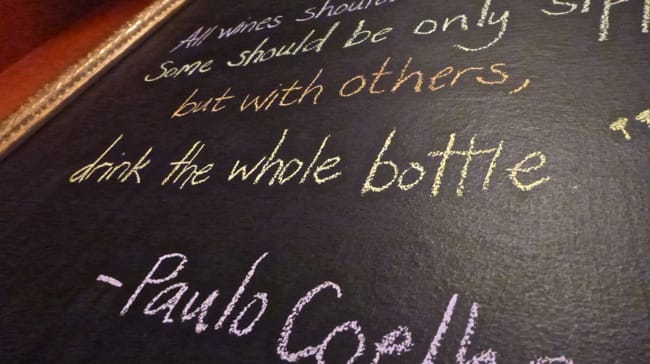 All wines should
Some should be only sipp
but with others,
drink the whole bottle
-Paulo Coelho